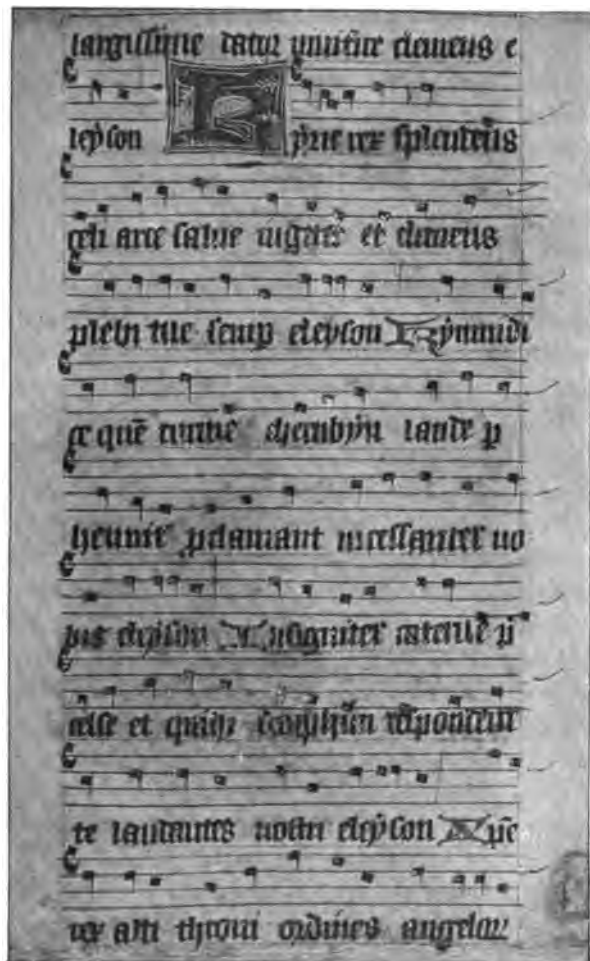 largissime dator munifice clemens e
leyson Kyrie rex splendens
celi arce salue iugiter et clemens
plebi tue semp eleyson Kymnidi
ce quē cunctie cherubyn laude p
henniter pclamant incessanter no
bis eleyson Insigniter caterue p
celse et seraphyn respondent
te laudantes nostri eleyson Xpē
rex alti throni ordines angelor